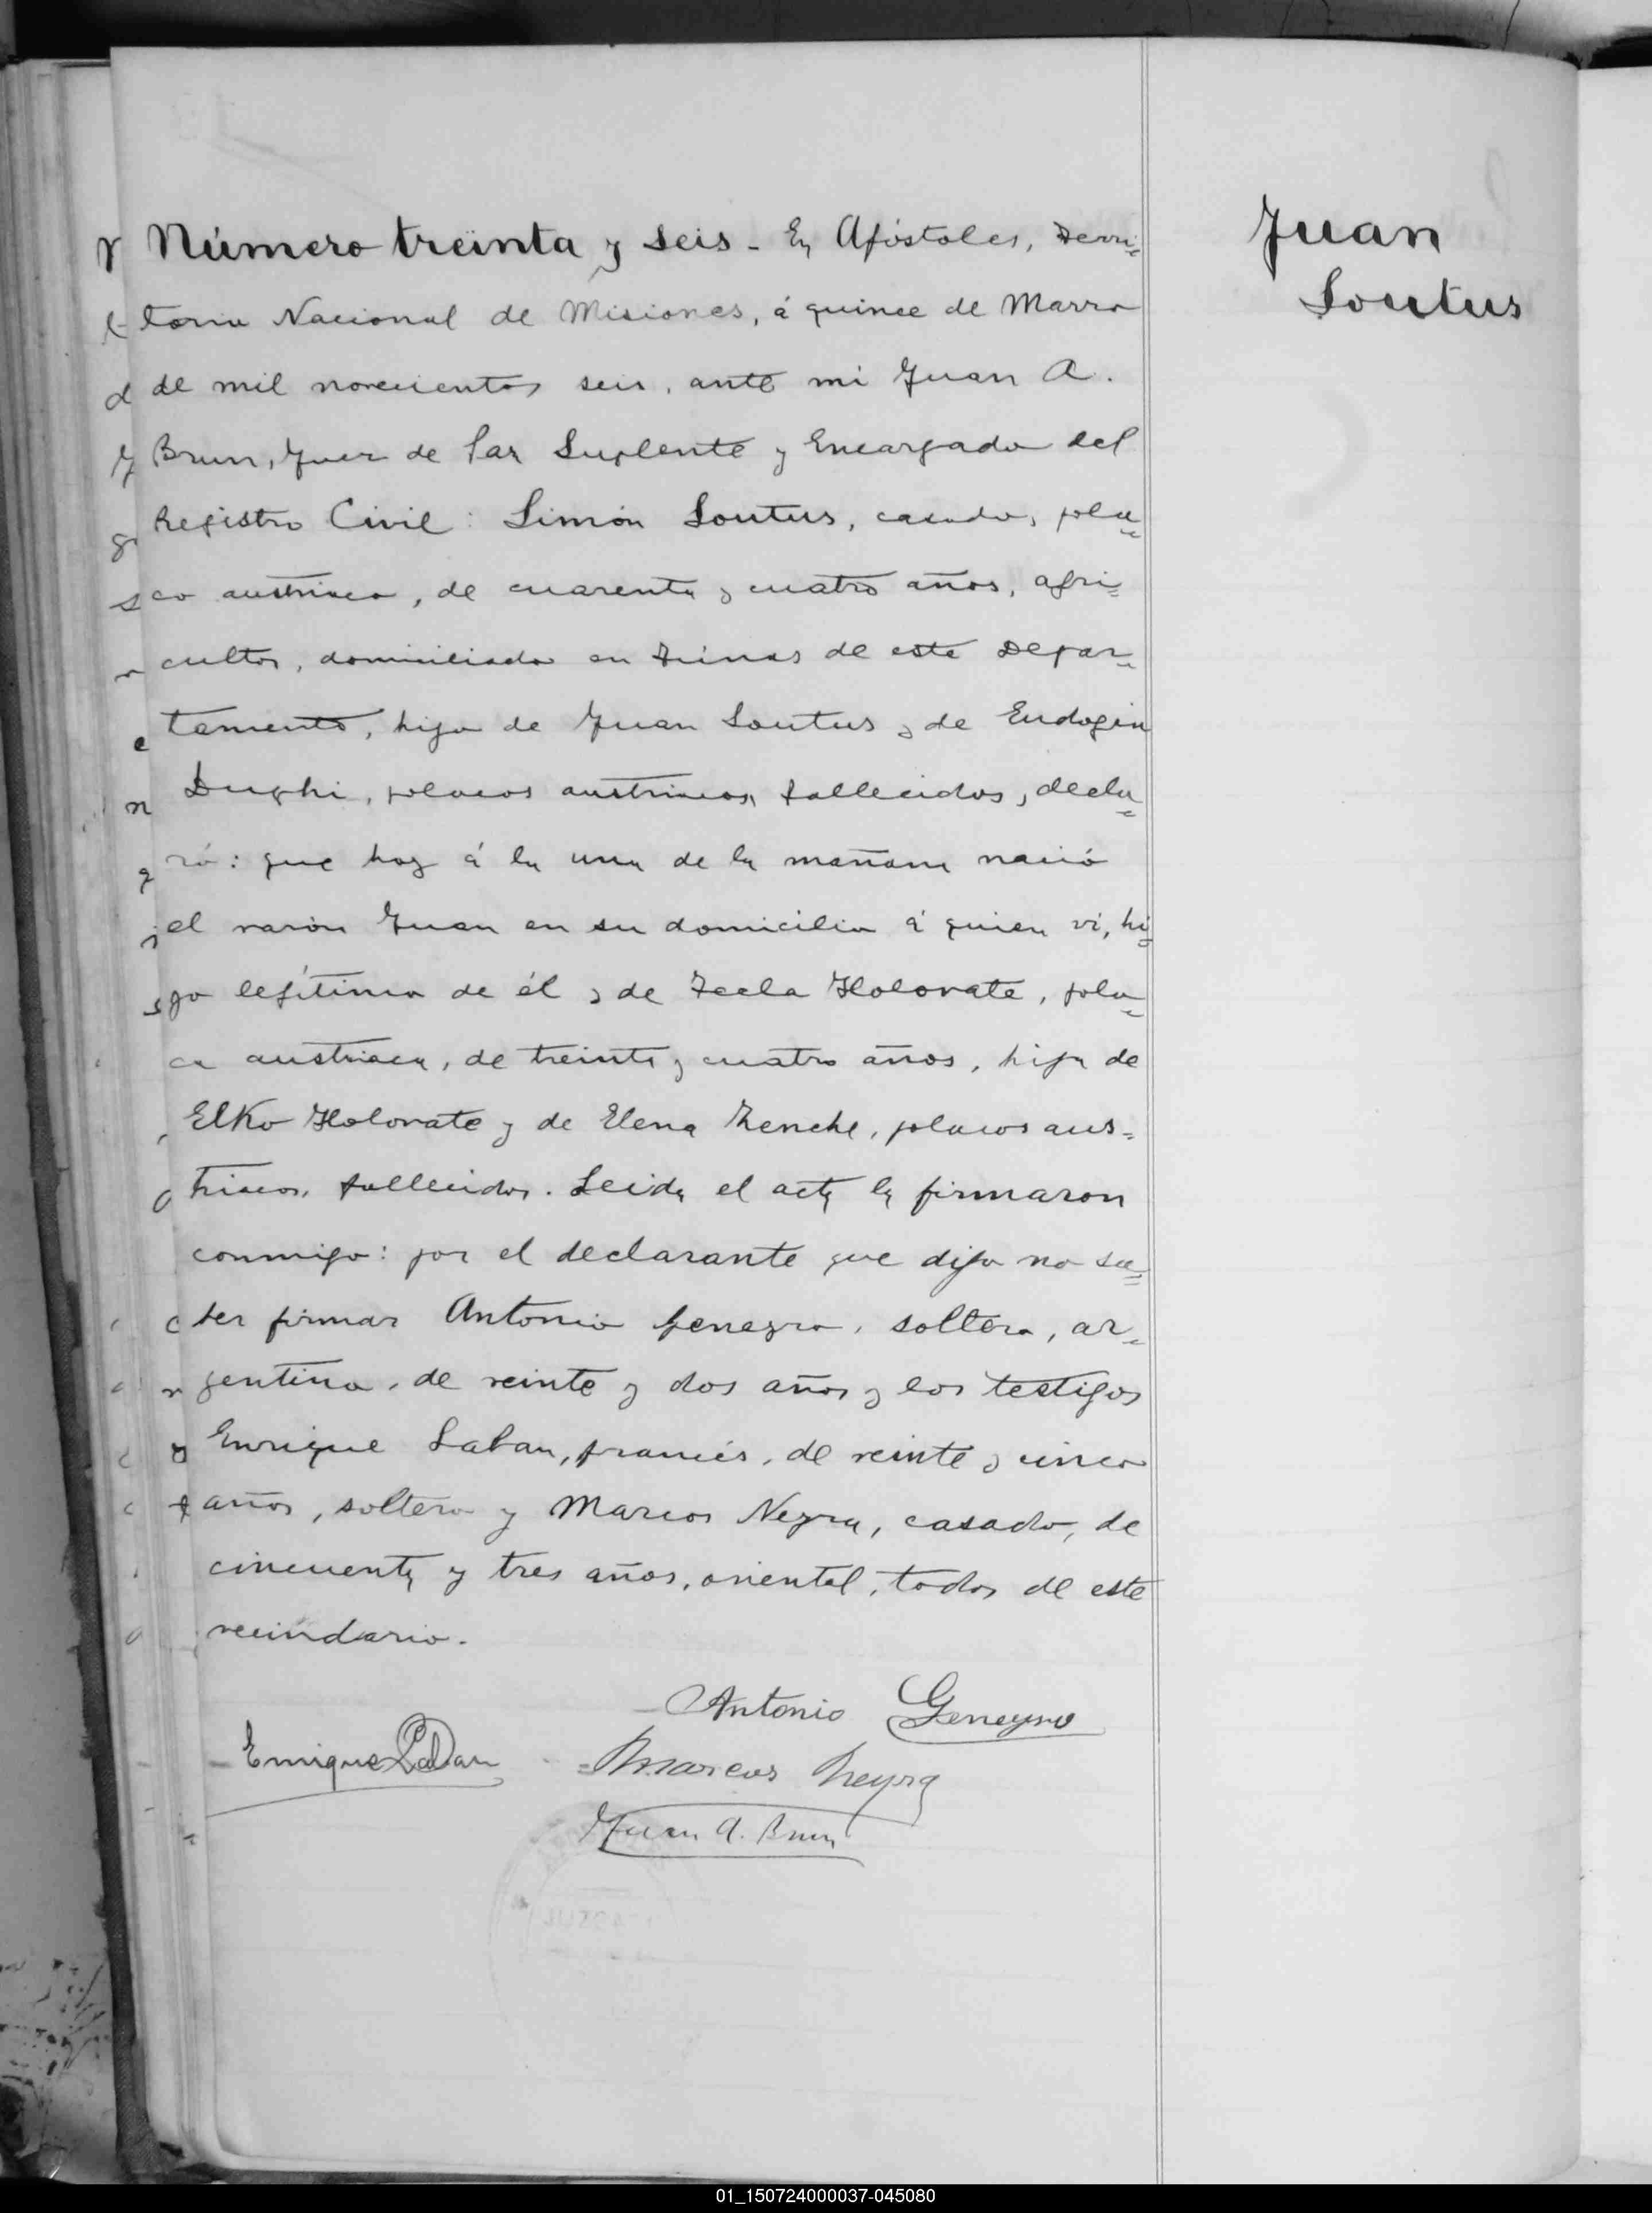 Juan
Soutus
Número treinta y seis - En Apóstoles, Terri=
torio Nacional de Misiones, á quince de Marzo
de mil novecientos seis, ante mi Juan A.
Brun, Juez de Paz Suplente y Encargado del
Registro Civil: Simón Soutus, casado, pola=
co austriaco, de cuarenta y cuatro años, agri=
cultor, domiciliado en de este Depar=
tamento, hijo de Juan Soutus y de Eudogia
Dughi, polacos austriacos, fallecidos, decla=
ró: que hoy á la una de la mañana nació
el varón Juan en su domicilio á quien ví, hi=
jo legítimo de él y de Tecla Holovate, pola=
ca austriaca, de treinta y cuatro años, hija de
Elko Holovate y de Elena polacos aus=
triacos, fallecidos. Leida el acta la firmaron
conmigo: por el declarante que dijo no sa=
ber firmar Antonio Geneyro, soltero, ar=
gentino, de veinte y dos años y los testigos
Enrique Laban, francés, de veinte y cinco
años, soltero y Marcos Neyra, casado, de
cincuenta y tres años, oriental, todos de este
vecindario.
Antonio Geneyro
Enrique Laban Marcos Neyra
Juan A. Brun
01_150724000037-045080